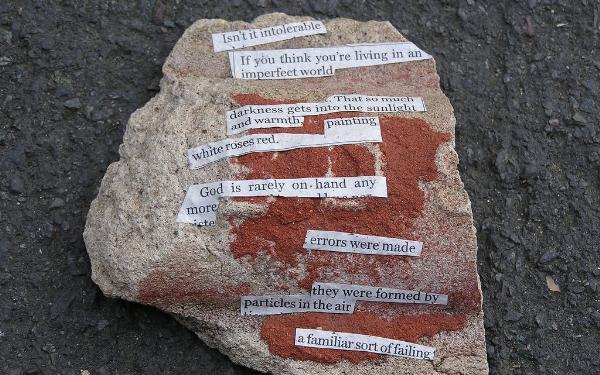 Isn't it intolerable
If you think you're living in an
imperfect world
That so much
darkness gets into the sunlight
and warmth,
painting
white roses red.
God is rarely on-hand any
more
errors were made
they were formed by
particles in the air
a familiar sort of failing